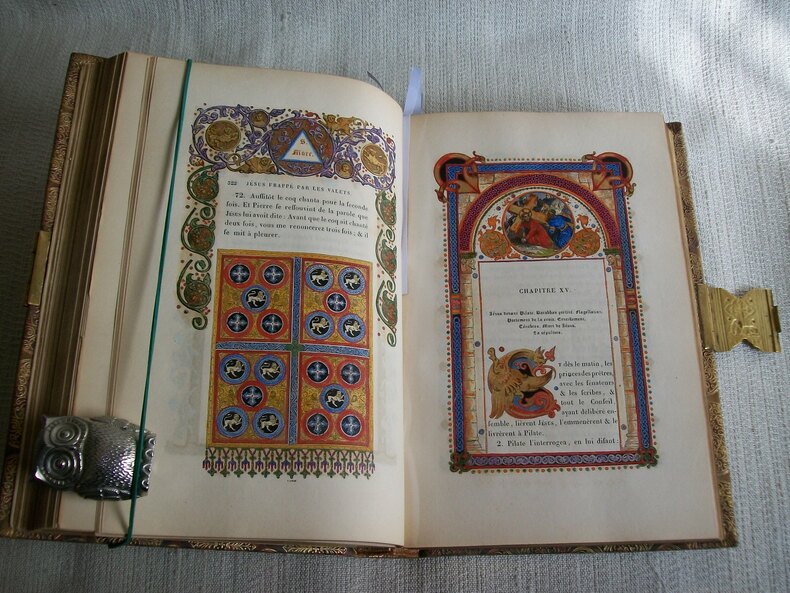 S.
Marc.
322 JÉSUS FRAPPÉ PAR LES VALETS
72. Auſſitôt le coq chanta pour la ſeconde
fois. Et Pierre ſe reſſouvint de la parole que
Jésus lui avoit dite: Avant que le coq ait chanté
deux fois, vous me renoncerez trois fois; & il
ſe mit à pleurer.
CHAPITRE XV.
Jésus devant Pilate. Barabbas préféré. Flagellation.
Portement de la croix. Crucifiement.
Ténèbres. Mort de Jésus.
Sa sépulture.
T dès le matin, les
princes des prêtres,
avec les ſenateurs
& les ſcribes, &
tout le Conſeil,
ayant délibéré en-
ſemble, lièrent Jésus, l'emmenèrent & le
livrèrent à Pilate.
2. Pilate l'interrogea, en lui diſant: